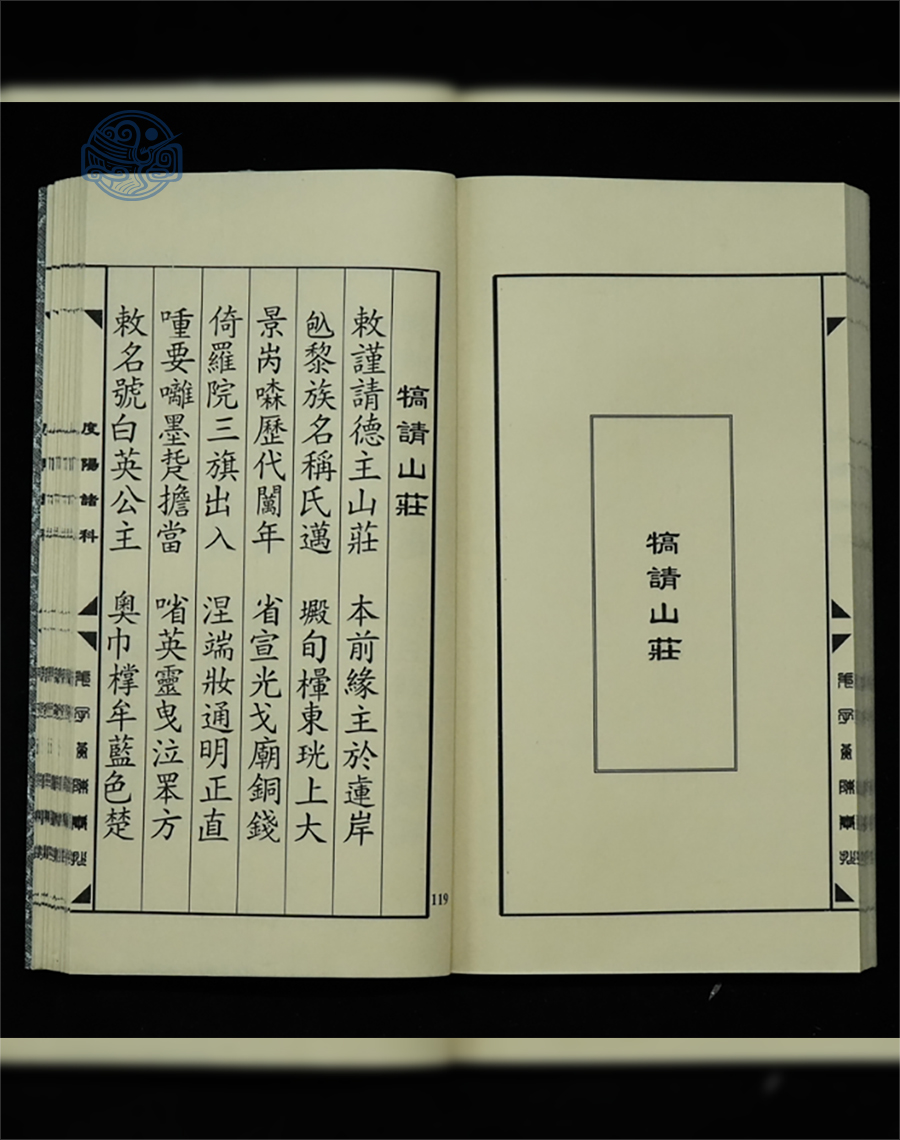 犒請山莊
犒請山莊
敕謹請德主山莊 本前緣主於蓮岸
黎族名稱氏邁 旬 東 上大
景 歷代闖年 省宣光戈廟銅錢
倚羅院三旗出入 涅端妝通明正直
喠要囄墨 擔當 㗂英靈曳泣罘方
敕名號白英公主 奧巾橕牟藍色楚
119
度陽諸科